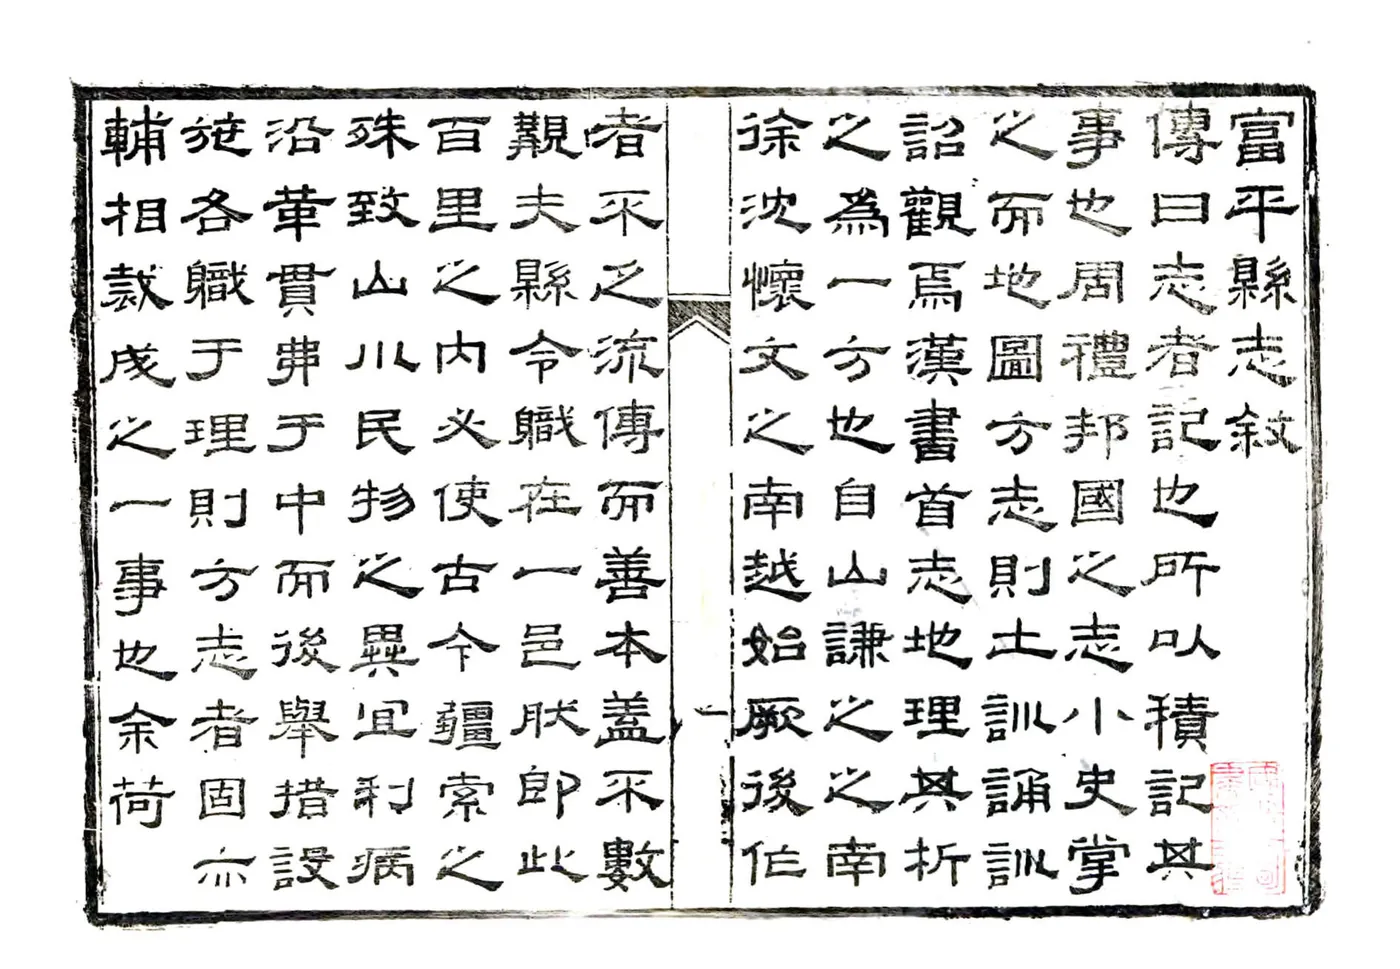 富平縣志敘
傳曰志者記也所以積記其
事也周禮邦國之志小史掌
之而地圖方志則土訓誦訓
詔觀焉漢書首志地理其折
之為一方也自山謙之之南
徐沈懷文之南越始厥後作
者不乏流傳而善本蓋不數
覯夫縣令職在一邑狀即此
百里之內必使古今疆索之
殊致山川民物之異宜利病
沿革貫弗于中而後舉措設
施各職于理則方志者固亦
輔相裁成之一事也余荷
一